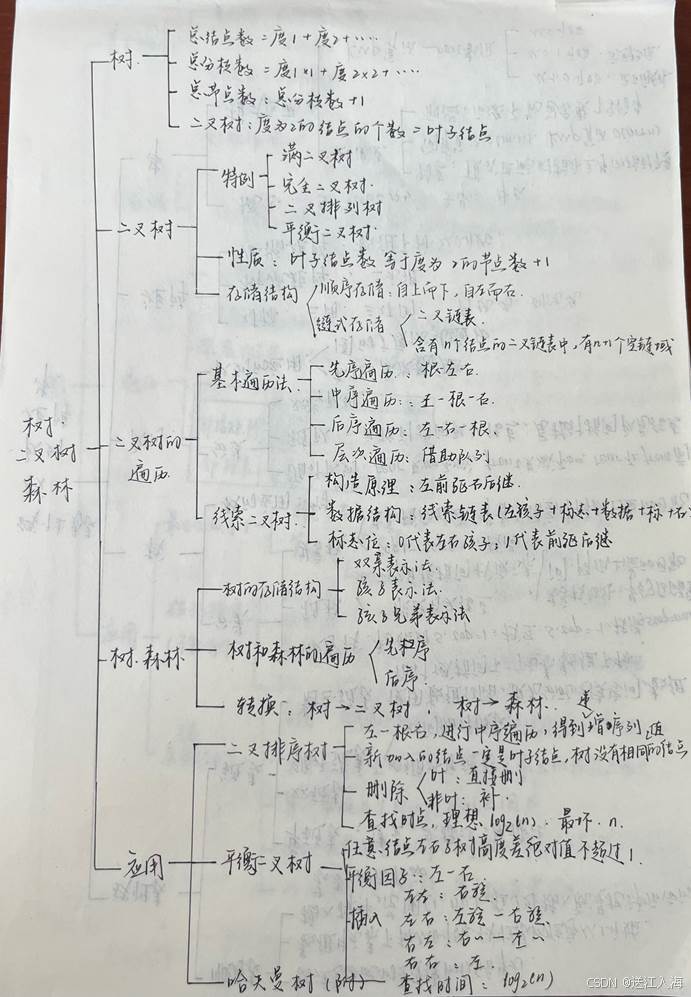 树.
总结点数 = 度1 + 度2 + ……
总分枝数 = 度1×1 + 度2×2 + ……
总节点数 : 总分枝数 + 1
二叉树 : 度为2的结点的个数 = 叶子结点
二叉树
特例
满二叉树
完全二叉树.
二叉排列树
平衡二叉树.
性质 : 叶子结点数 等于度为 2的节点数 + 1
存储结构
顺序存储 : 自上而下, 自左而右.
链式存储
二叉链表.
含有n个结点的二叉链表中, 有n+1个空链域
树.
二叉树
森林
二叉树的
遍历.
基本遍历法.
先序遍历 : 根-左-右.
中序遍历 : 左-根-右.
后序遍历 : 左-右-根.
层次遍历 : 借助队列
线索二叉树
构造原理 : 左前驱右后继.
数据结构 : 线索链表(左孩子+标志+数据+标+右
标志位 : 0代表左右孩子; 1代表前驱后继
树.森林
树的存储结构
双亲表示法.
孩子表示法.
孩子兄弟表示法
树和森林的遍历
先序
后序
转换 : 树→二叉树 , 树→森林.
应用
二叉排序树
左-根-右, 进行中序遍历, 得到递增序列
新加入的结点一定是叶子结点, 树没有相同值的结点
删除
叶 : 直接删
非叶 : 补.
查找时点, 理想 log₂(n) . 最坏. n.
平衡二叉树
任意结点左右子树高度差绝对值不超过1.
平衡因子 : 左-右.
插入
左左 : 右旋.
左右 : 左旋-右旋.
右左 : 右〃-左〃
右右 : 左.
查找时间 : log₂(n)
哈夫曼树 (附)
CSDN @送江入海